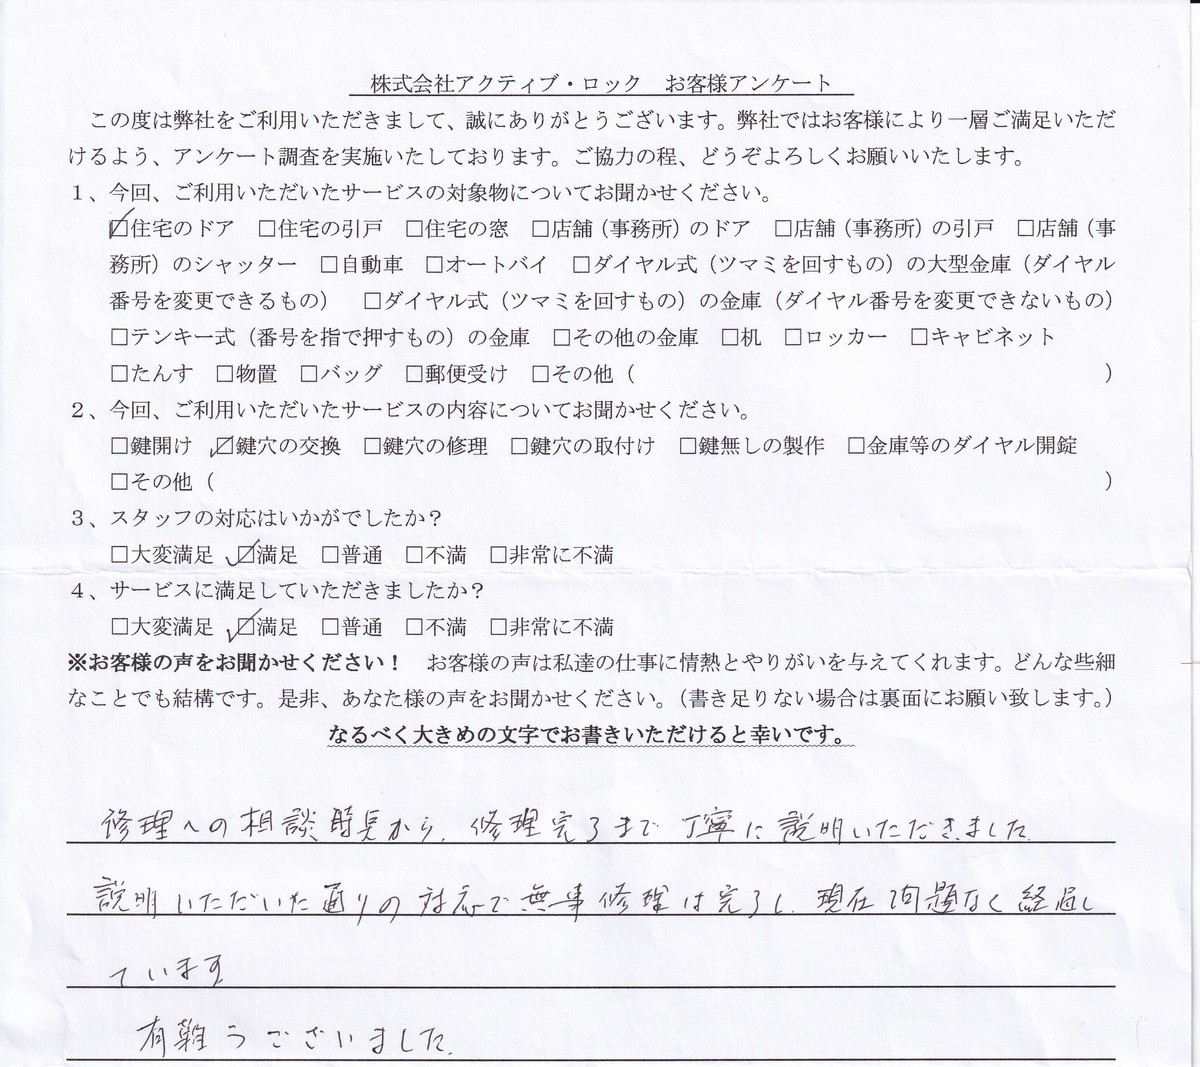 株式会社アクティブ・ロック　お客様アンケート
この度は弊社をご利用いただきまして、誠にありがとうございます。弊社ではお客様により一層ご満足いただ
けるよう、アンケート調査を実施いたしております。ご協力の程、どうぞよろしくお願いいたします。
１、今回、ご利用いただいたサービスの対象物についてお聞かせください。
☑住宅のドア　□住宅の引戸　□住宅の窓　□店舗（事務所）のドア　□店舗（事務所）の引戸　□店舗（事
務所）のシャッター　□自動車　□オートバイ　□ダイヤル式（ツマミを回すもの）の大型金庫（ダイヤル
番号を変更できるもの）　□ダイヤル式（ツマミを回すもの）の金庫（ダイヤル番号を変更できないもの）
□テンキー式（番号を指で押すもの）の金庫　□その他の金庫　□机　□ロッカー　□キャビネット
□たんす　□物置　□バッグ　□郵便受け　□その他（　　　　　）
２、今回、ご利用いただいたサービスの内容についてお聞かせください。
□鍵開け　☑鍵穴の交換　□鍵穴の修理　□鍵穴の取付け　□鍵無しの製作　□金庫等のダイヤル開錠
□その他（　　　　　）
３、スタッフの対応はいかがでしたか？
□大変満足　☑満足　□普通　□不満　□非常に不満
４、サービスに満足していただきましたか？
□大変満足　☑満足　□普通　□不満　□非常に不満
※お客様の声をお聞かせください！　お客様の声は私達の仕事に情熱とやりがいを与えてくれます。どんな些細
なことでも結構です。是非、あなた様の声をお聞かせください。（書き足りない場合は裏面にお願い致します。）
なるべく大きめの文字でお書きいただけると幸いです。
修理への相談時から、修理完了まで丁寧に説明いただきました。
説明いただいた通りの対応で無事修理は完了し、現在問題なく経過し
ています
有難うございました。